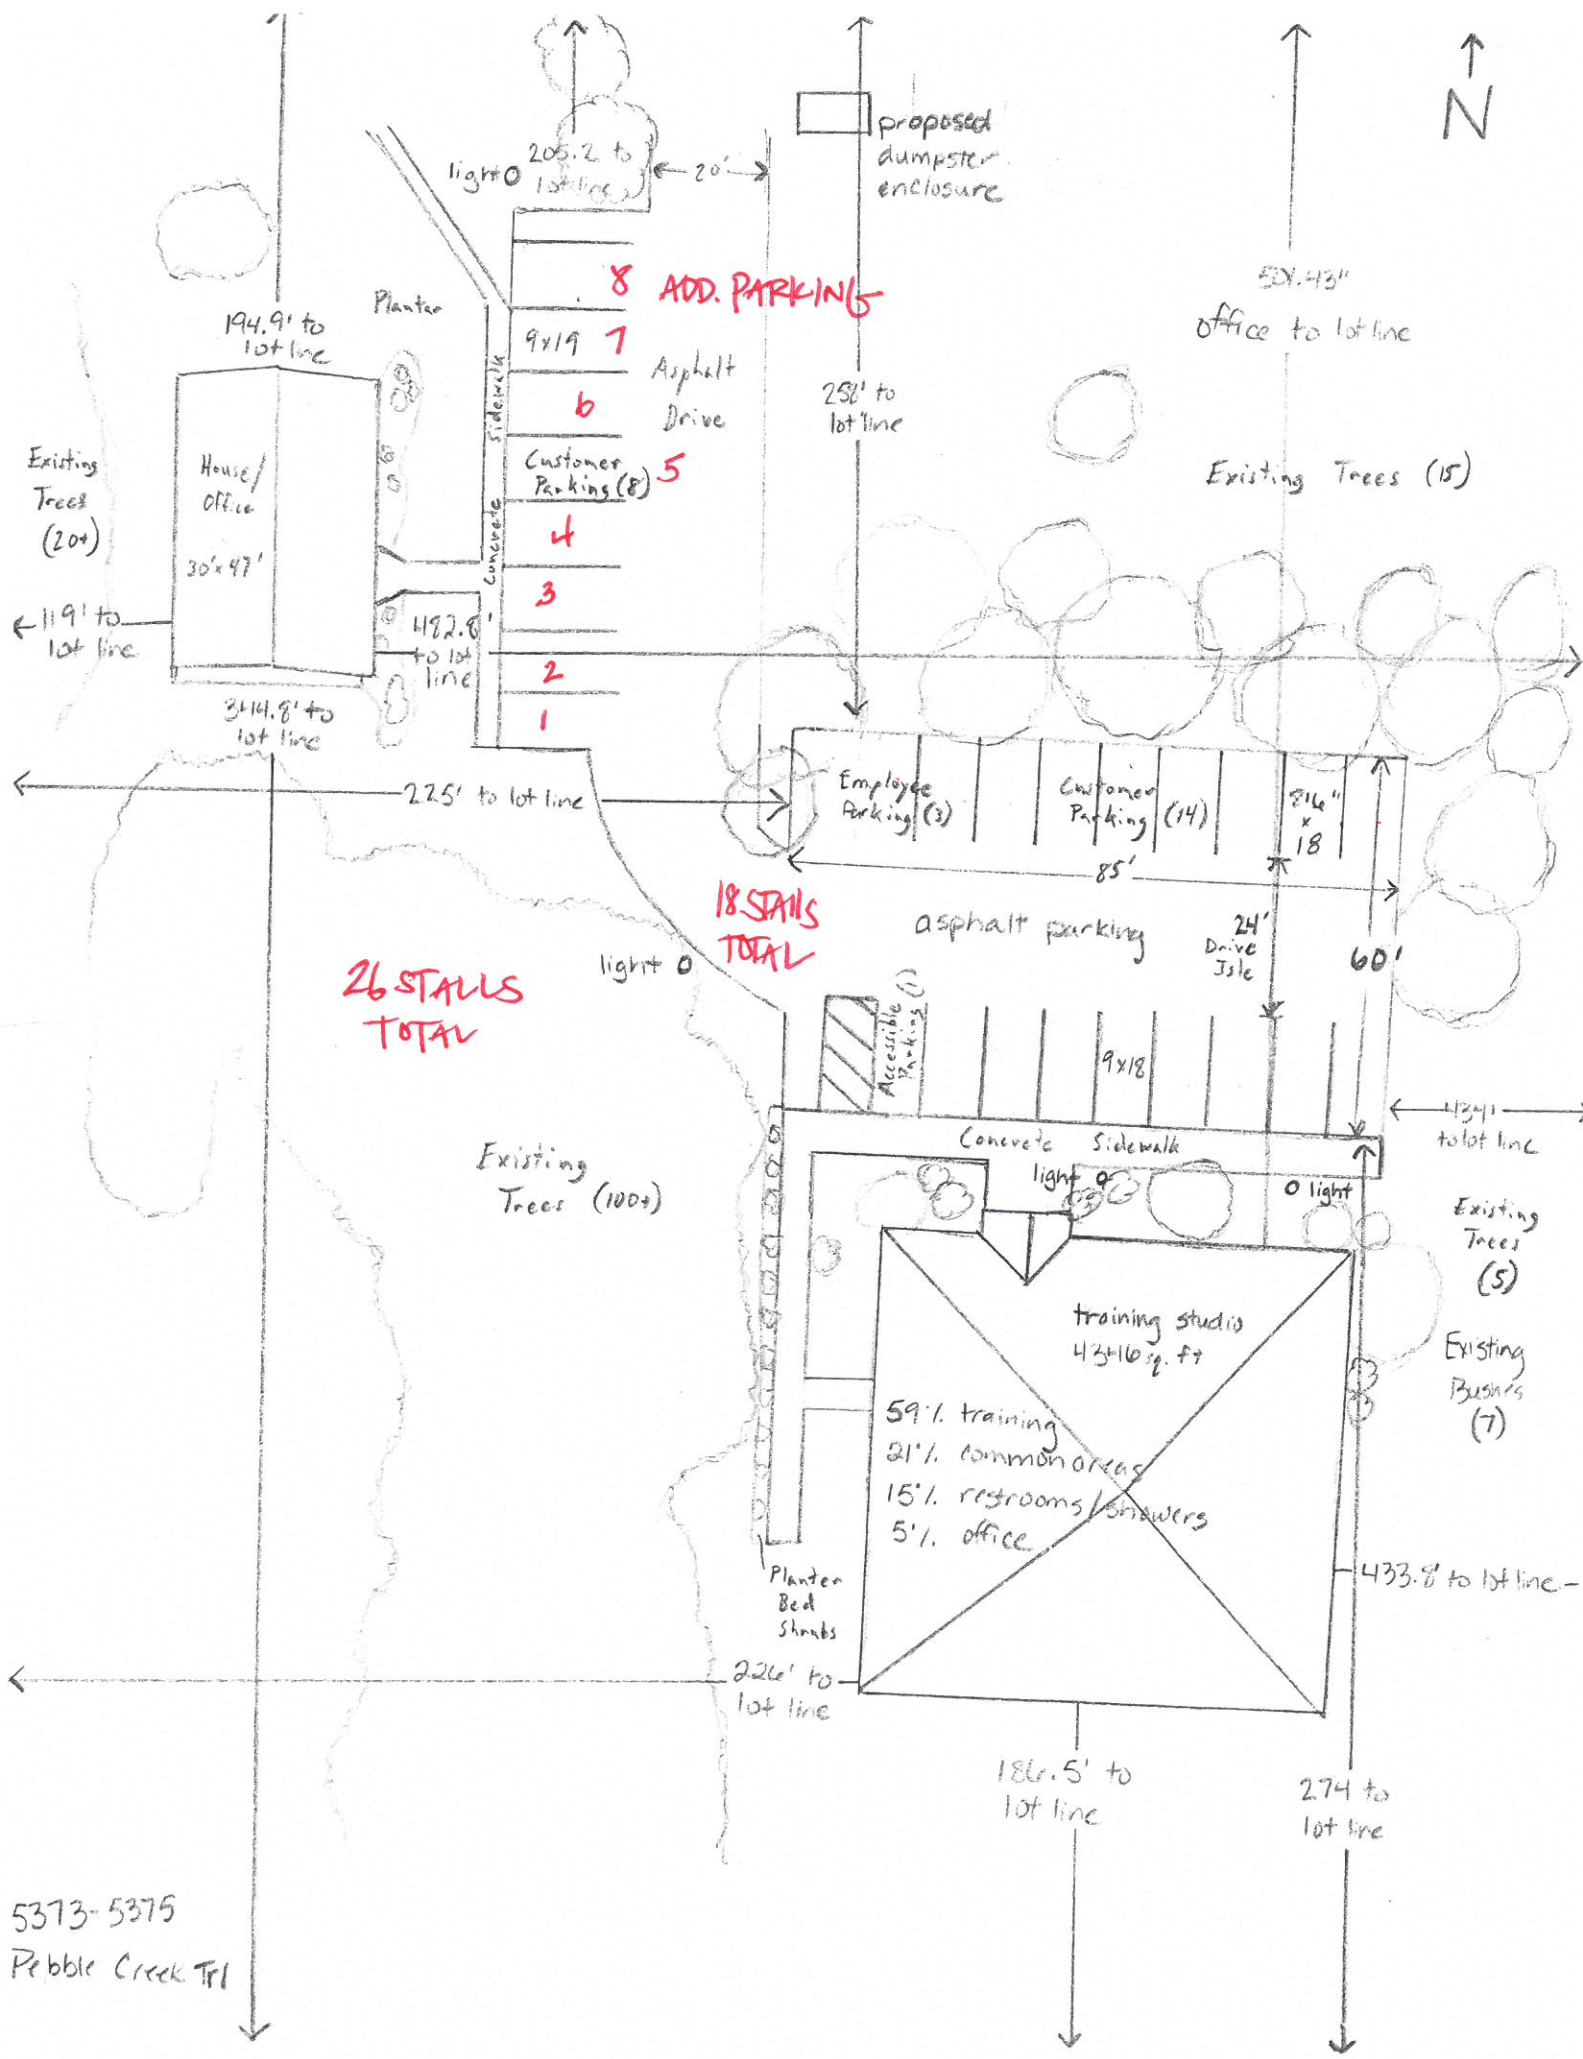 N
proposed
dumpster
enclosure
light
205.2 to
lot line
20'
8 ADD. PARKING
Planter
194.9' to
lot line
9x19 7
Asphalt
Drive
6
Sidewalk
Concrete
Customer
Parking (8) 5
4
3
2
1
258' to
lot line
office to lot line
Existing Trees (15)
Existing
Trees
(20+)
House/
Office
30'x47'
119' to
lot line
482.8'
to lot
line
344.8' to
lot line
225' to lot line
Employee
Parking (3)
Customer
Parking (14)
8'6"
x
18
85'
18 STALLS
TOTAL
asphalt parking
24'
Drive
Isle
60'
light
26 STALLS
TOTAL
Accessible
Parking (1)
9x18
434'
to lot line
Concrete Sidewalk
light
light
Existing
Trees (100+)
Existing
Trees
(5)
training studio
sq. ft
Existing
Bushes
(7)
59% training
21% common areas
15% restrooms/showers
5% office
Planter
Bed
Shrubs
433.8' to lot line
226' to
lot line
186.5' to
lot line
274 to
lot line
5373-5375
Pebble Creek Trl